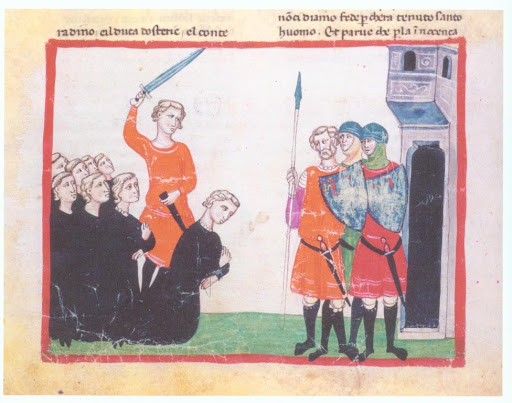 radino, eil duca dosteric, el conte
nōci diamo fede p chera tenuto santo
huomo. Et parue che p la ĩnocença